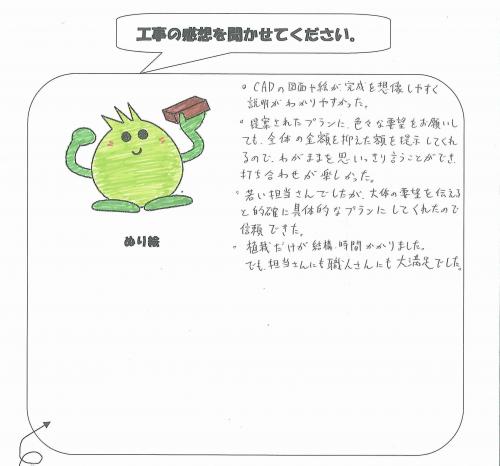 工事の感想を聞かせてください。
。CADの図面や絵が完成を想像しやすく
説明がわかりやすかった。
。提案されたプランに、色々な要望をお願いし
ても、全体の金額を抑えた額を提示してくれ
るので、わがままを思いっきり言うことができ、
打ち合わせが楽しかった。
。若い担当さんでしたが、大体の要望を伝える
と的確に具体的なプランにしてくれたので
信頼できた。
。植栽だけが結構時間かかりました。
でも、担当さんにも職人さんにも大満足でした。
ぬり絵